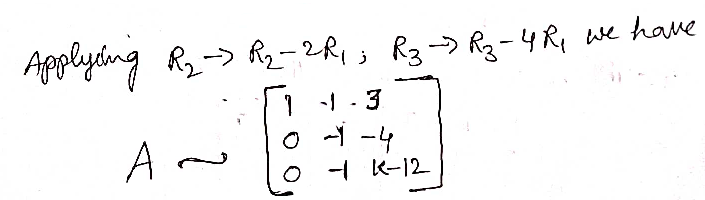 Applying R₂→ R₂-2R₁ ; R₃→ R₃-4R₁ we have
1 -1 3
A ~ 0 -1 -4
0 -1 K-12